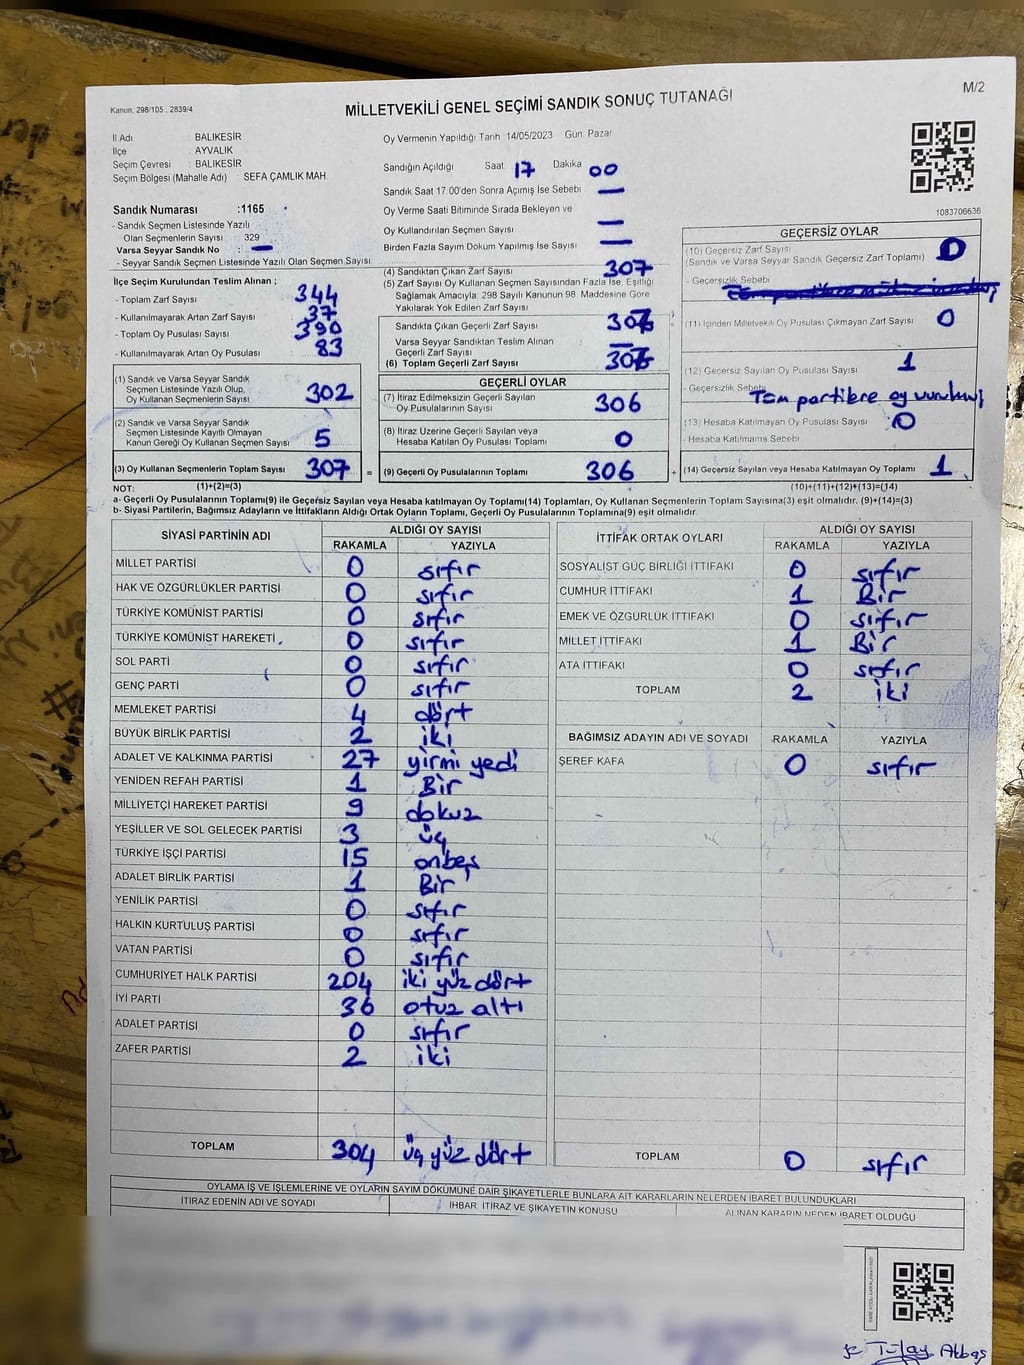 Kanun: 298/105 , 2839/4
MİLLETVEKİLİ GENEL SEÇİMİ SANDIK SONUÇ TUTANAĞI
M/2
İl Adı : BALIKESİR
İlçe : AYVALIK
Seçim Çevresi : BALIKESİR
Seçim Bölgesi (Mahalle Adı) : SEFA ÇAMLIK MAH.
Oy Vermenin Yapıldığı Tarih 14/05/2023 Gün Pazar
Sandığın Açıldığı Saat 17 Dakika 00
Sandık Saat 17:00'den Sonra Açımış İse Sebebi —
Oy Verme Saati Bitiminde Sırada Bekleyen ve
Oy Kullandırılan Seçmen Sayısı —
Birden Fazla Sayım Döküm Yapılmış İse Sayısı —
1083706636
Sandık Numarası :1165
- Sandık Seçmen Listesinde Yazılı
Olan Seçmenlerin Sayısı 329
Varsa Seyyar Sandık No —
- Seyyar Sandık Seçmen Listesinde Yazılı Olan Seçmen Sayısı:
İlçe Seçim Kurulundan Teslim Alınan ;
- Toplam Zarf Sayısı : 344
- Kullanılmayarak Artan Zarf Sayısı : 37
- Toplam Oy Pusulası Sayısı : 390
- Kullanılmayarak Artan Oy Pusulası : 83
(1) Sandık ve Varsa Seyyar Sandık
Seçmen Listesinde Yazılı Olup,
Oy Kullanan Seçmenlerin Sayısı 302
(2) Sandık ve Varsa Seyyar Sandık
Seçmen Listesinde Kayıtlı Olmayan
Kanun Gereği Oy Kullanan Seçmen Sayısı 5
(3) Oy Kullanan Seçmenlerin Toplam Sayısı 307
(4) Sandıktan Çıkan Zarf Sayısı 307
(5) Zarf Sayısı Oy Kullanan Seçmen Sayısından Fazla İse, Eşitliği
Sağlamak Amacıyla, 298 Sayılı Kanunun 98. Maddesine Göre
Yakılarak Yok Edilen Zarf Sayısı
Sandıkta Çıkan Geçerli Zarf Sayısı :
Varsa Seyyar Sandıktan Teslim Alınan
Geçerli Zarf Sayısı : —
(6) Toplam Geçerli Zarf Sayısı :
GEÇERLİ OYLAR
(7) İtiraz Edilmeksizin Geçerli Sayılan
Oy Pusulalarının Sayısı 306
(8) İtiraz Üzerine Geçerli Sayılan veya
Hesaba Katılan Oy Pusulası Toplamı 0
= (9) Geçerli Oy Pusulalarının Toplamı 306
GEÇERSİZ OYLAR
(10) Geçersiz Zarf Sayısı
(Sandık ve Varsa Seyyar Sandık Geçersiz Zarf Toplamı) 0
- Geçersizlik Sebebi
(11) İçinden Milletvekili Oy Pusulası Çıkmayan Zarf Sayısı 0
(12) Geçersiz Sayılan Oy Pusulası Sayısı 1
- Geçersizlik Sebebi
Tüm partilere oy vurulmuş
(13) Hesaba Katılmayan Oy Pusulası Sayısı 0
- Hesaba Katılmama Sebebi
+ (14) Geçersiz Sayılan veya Hesaba Katılmayan Oy Toplamı 1
NOT: (1)+(2)=(3) (10)+(11)+(12)+(13)=(14)
a- Geçerli Oy Pusulalarının Toplamı(9) ile Geçersiz Sayılan veya Hesaba katılmayan Oy Toplamı(14) Toplamları, Oy Kullanan Seçmenlerin Toplam Sayısına(3) eşit olmalıdır. (9)+(14)=(3)
b- Siyasi Partilerin, Bağımsız Adayların ve İttifakların Aldığı Ortak Oyların Toplamı, Geçerli Oy Pusulalarının Toplamına(9) eşit olmalıdır.
SİYASİ PARTİNİN ADI ALDIĞI OY SAYISI
RAKAMLA YAZIYLA
MİLLET PARTİSİ 0 sıfır
HAK VE ÖZGÜRLÜKLER PARTİSİ 0 sıfır
TÜRKİYE KOMÜNİST PARTİSİ 0 sıfır
TÜRKİYE KOMÜNİST HAREKETİ 0 sıfır
SOL PARTİ 0 sıfır
GENÇ PARTİ 0 sıfır
MEMLEKET PARTİSİ 4 dört
BÜYÜK BİRLİK PARTİSİ 2 iki
ADALET VE KALKINMA PARTİSİ 27 yirmi yedi
YENİDEN REFAH PARTİSİ 1 Bir
MİLLİYETÇİ HAREKET PARTİSİ 9 dokuz
YEŞİLLER VE SOL GELECEK PARTİSİ 3 üç
TÜRKİYE İŞÇİ PARTİSİ 15 onbeş
ADALET BİRLİK PARTİSİ 1 Bir
YENİLİK PARTİSİ 0 sıfır
HALKIN KURTULUŞ PARTİSİ 0 sıfır
VATAN PARTİSİ 0 sıfır
CUMHURİYET HALK PARTİSİ 204 iki yüz dört
İYİ PARTİ 36 otuz altı
ADALET PARTİSİ 0 sıfır
ZAFER PARTİSİ 2 iki
TOPLAM 304 üç yüz dört
İTTİFAK ORTAK OYLARI ALDIĞI OY SAYISI
RAKAMLA YAZIYLA
SOSYALİST GÜÇ BİRLİĞİ İTTİFAKI 0 sıfır
CUMHUR İTTİFAKI 1 Bir
EMEK VE ÖZGÜRLÜK İTTİFAKI 0 sıfır
MİLLET İTTİFAKI 1 Bir
ATA İTTİFAKI 0 sıfır
TOPLAM 2 iki
BAĞIMSIZ ADAYIN ADI VE SOYADI RAKAMLA YAZIYLA
ŞEREF KAFA 0 sıfır
TOPLAM 0 sıfır
OYLAMA İŞ VE İŞLEMLERİNE VE OYLARIN SAYIM DÖKÜMÜNE DAİR ŞİKAYETLERLE BUNLARA AİT KARARLARIN NELERDEN İBARET BULUNDUKLARI
İTİRAZ EDENİN ADI VE SOYADI İHBAR, İTİRAZ VE ŞİKAYETİN KONUSU ALINAN KARARIN NEDEN İBARET OLDUĞU
Tülay Akbaş